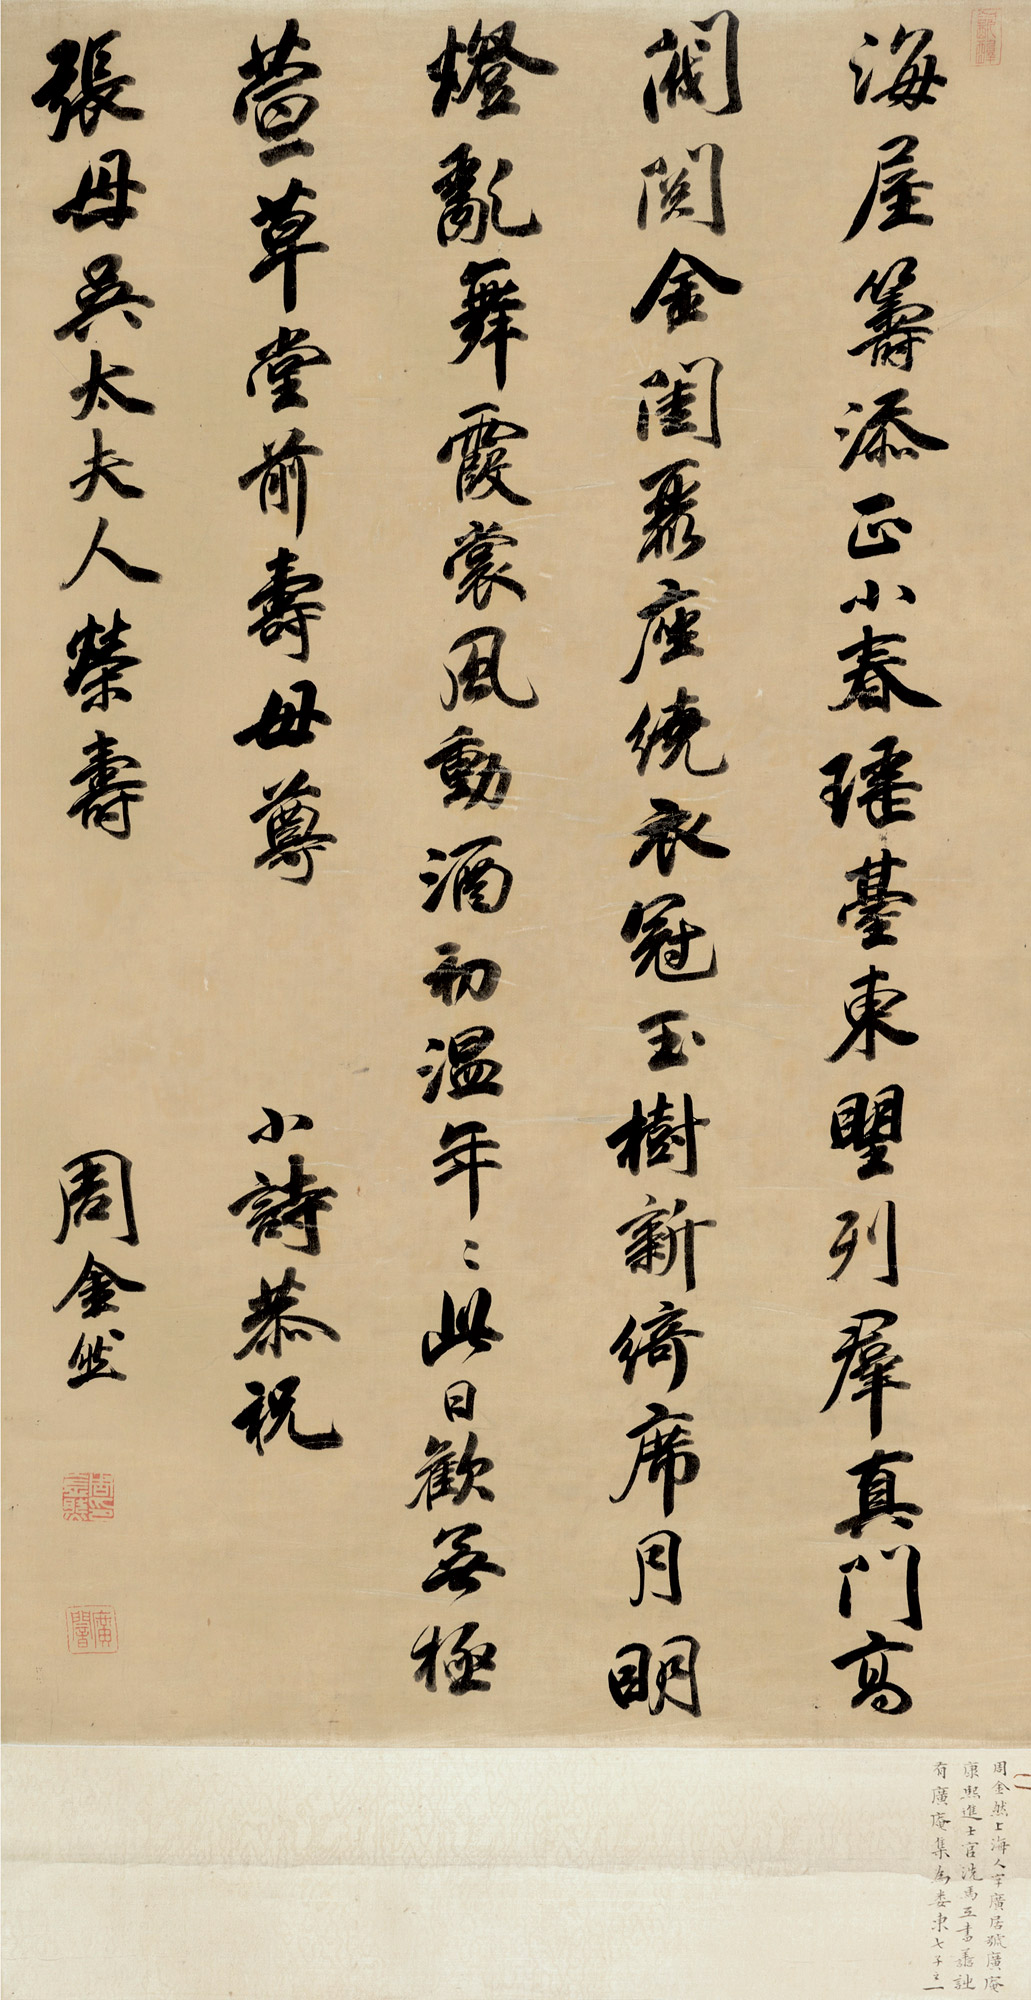 海屋籌添正小春瑤臺東望列羣真門高
閥閱金閨聚座繞衣冠玉樹新綺席月明
燈亂舞霞裳風動酒初溫年〻此日歡無極
萱草堂前壽母尊 小詩恭祝
張母吳太夫人榮壽 周金然
周金然上海人字廣居號廣庵
康熙進士官洗馬工書善詩
有廣庵集為婁東七子之一